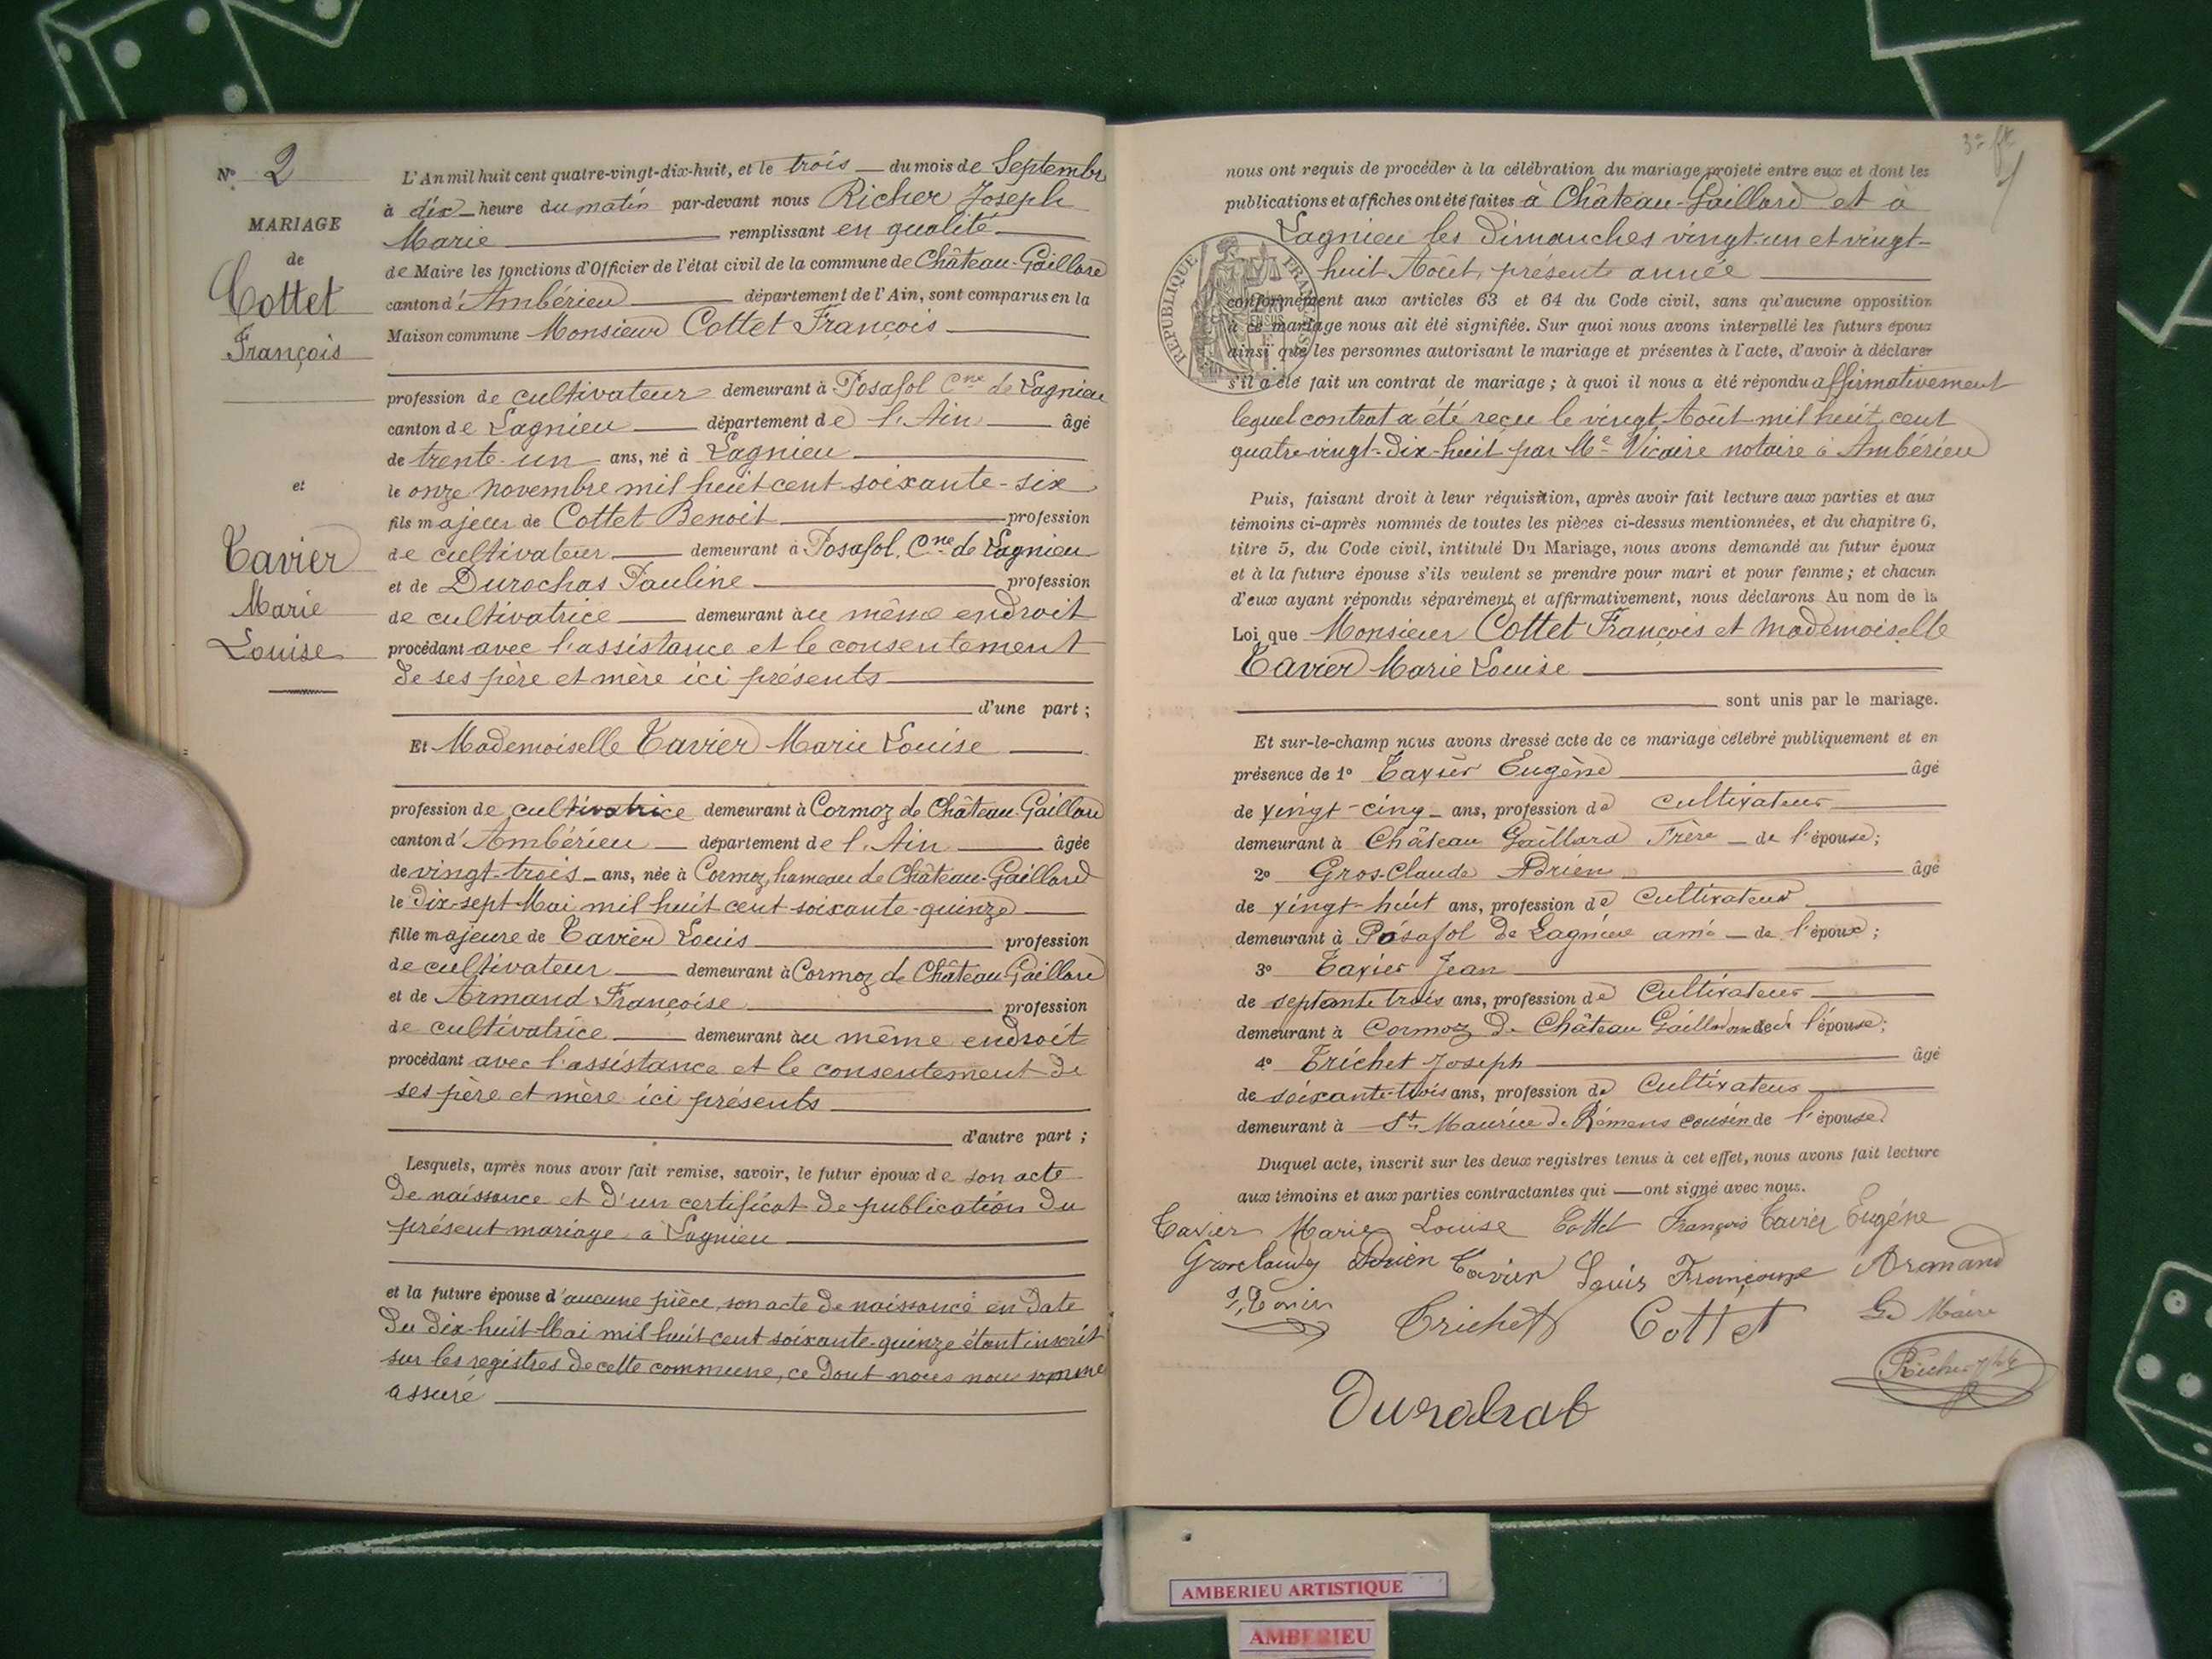 N° 2
MARIAGE
de
Cottet
François
et
Tavier
Marie
Louise
L'An mil huit cent quatre-vingt-dix-huit, et le trois du mois de Septembre
à dix heure du matin par-devant nous Richer Joseph
Marie remplissant en qualité
de Maire les fonctions d'Officier de l'état civil de la commune de Château-Gaillard
canton d'Ambérieu département de l'Ain, sont comparus en la
Maison commune Monsieur Cottet François
profession de cultivateur demeurant à Posafol Cne de Lagnieu
canton de Lagnieu département de l'Ain âgé
de trente-un ans, né à Lagnieu
le onze novembre mil huit cent soixante-six
fils majeur de Cottet Benoit profession
de cultivateur demeurant à Posafol, Cne de Lagnieu
et de Durochas Pauline profession
de cultivatrice demeurant au même endroit
procédant avec l'assistance et le consentement
de ses père et mère ici présents
d'une part ;
Et Mademoiselle Tavier Marie Louise
profession de cultivatrice demeurant à Cormoz de Château-Gaillard
canton d'Ambérieu département de l'Ain âgée
de vingt-trois ans, née à Cormoz, hameau de Château-Gaillard
le dix-sept Mai mil huit cent soixante-quinze
fille majeure de Tavier Louis profession
de cultivateur demeurant à Cormoz de Château-Gaillard
et de Armand Françoise profession
de cultivatrice demeurant au même endroit
procédant avec l'assistance et le consentement de
ses père et mère ici présents
d'autre part ;
Lesquels, après nous avoir fait remise, savoir, le futur époux de son acte
de naissance et d'un certificat de publication du
présent mariage à Lagnieu
et la future épouse d'aucune pièce, son acte de naissance en date
du dix-huit Mai mil huit cent soixante-quinze étant inscrit
sur les registres de cette commune, ce dont nous nous somme
assuré
nous ont requis de procéder à la célébration du mariage projeté entre eux et dont les
publications et affiches ont été faites à Château-Gaillard et à
Lagnieu les dimanches vingt-un et vingt-
huit Août, présente année
RÉPUBLIQUE FRANÇAISE
conformément aux articles 63 et 64 du Code civil, sans qu'aucune opposition
à ce mariage nous ait été signifiée. Sur quoi nous avons interpellé les futurs époux
ainsi que les personnes autorisant le mariage et présentes à l'acte, d'avoir à déclarer
s'il a été fait un contrat de mariage ; à quoi il nous a été répondu affirmativement
lequel contrat a été reçu le vingt Août mil huit cent
quatre-vingt-dix-huit par Me Vicaire notaire à Ambérieu
Puis, faisant droit à leur réquisition, après avoir fait lecture aux parties et aux
témoins ci-après nommés de toutes les pièces ci-dessus mentionnées, et du chapitre 6,
titre 5, du Code civil, intitulé Du Mariage, nous avons demandé au futur époux
et à la future épouse s'ils veulent se prendre pour mari et pour femme ; et chacun
d'eux ayant répondu séparément et affirmativement, nous déclarons Au nom de la
Loi que Monsieur Cottet François et Mademoiselle
Tavier Marie Louise
sont unis par le mariage.
Et sur-le-champ nous avons dressé acte de ce mariage célébré publiquement et en
présence de 1° Tavier Eugène âgé
de vingt-cinq ans, profession de Cultivateur
demeurant à Château Gaillard Frère de l'épouse ;
2° Gros-Claude Adrien âgé
de vingt-huit ans, profession de Cultivateur
demeurant à Posafol de Lagnieu ami de l'époux ;
3° Tavier Jean
de septante trois ans, profession de Cultivateur
demeurant à Cormoz de Château Gaillard de l'épouse ;
4° Trichet Joseph âgé
de soixante-trois ans, profession de Cultivateur
demeurant à St Maurice de Rémens cousin de l'épouse
Duquel acte, inscrit sur les deux registres tenus à cet effet, nous avons fait lecture
aux témoins et aux parties contractantes qui ont signé avec nous.
Tavier Marie Louise Cottet François Tavier Eugéne
Grosclaude Adrien Tavier Louis Françoise Armand
J, Tavier Trichet Cottet Le Maire
AMBERIEU ARTISTIQUE
AMBERIEU